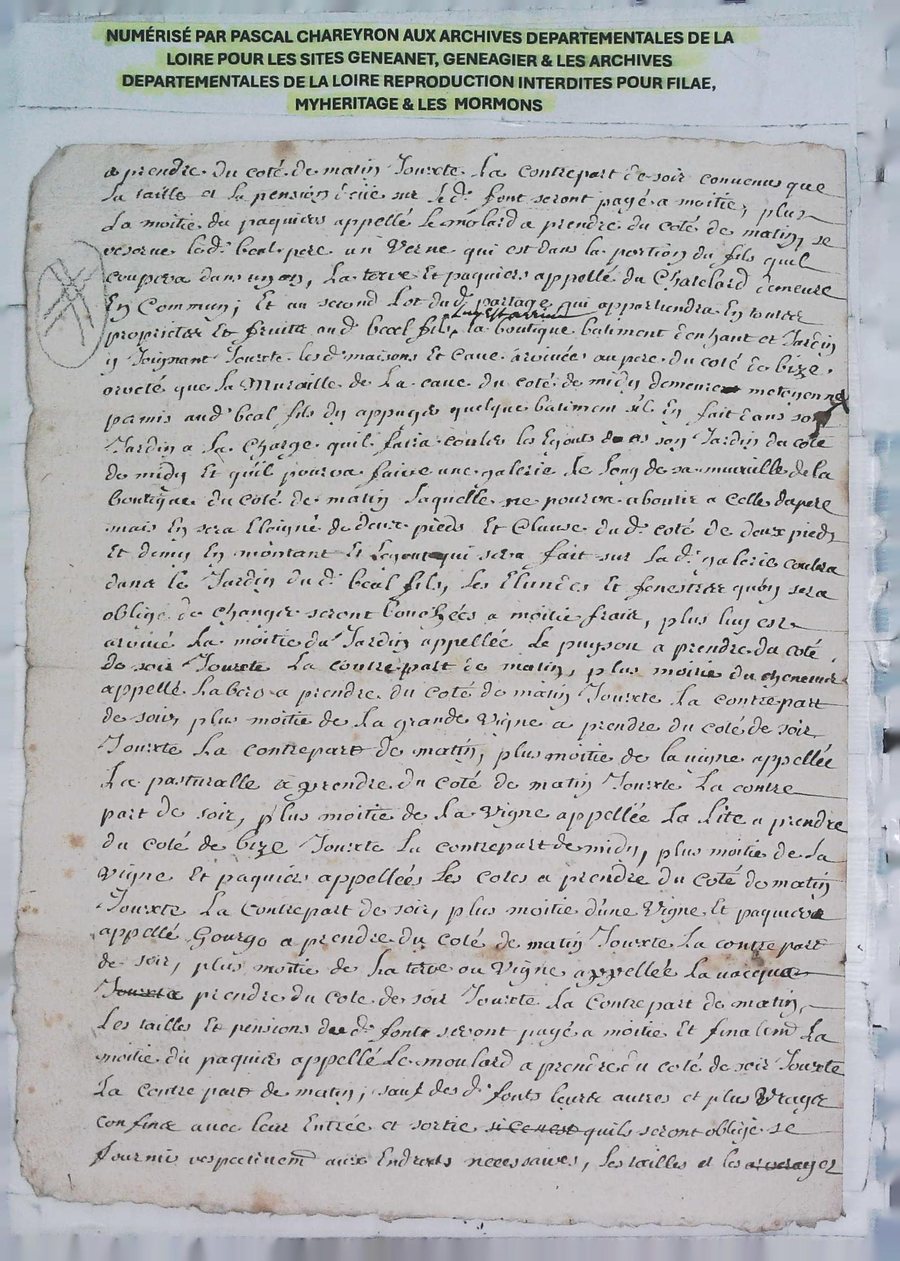 NUMÉRISÉ PAR PASCAL CHAREYRON AUX ARCHIVES DEPARTEMENTALES DE LA
LOIRE POUR LES SITES GENEANET, GENEAGIER & LES ARCHIVES
DEPARTEMENTALES DE LA LOIRE REPRODUCTION INTERDITES POUR FILAE,
MYHERITAGE & LES MORMONS
a prendre du coté de matin Jouxte la contrepart de soir convenus que
la taille et la pension deüe sur led. font seront payé a moitie, plus
la moitie du paquier appellé le molard a prendre du coté de matin, se
reserve led. beal pere un Verne qui est dans la portion du fils quil
coupera dans un an, La terre Et paquiers appellé du Chatelard demeure
En Commun; Et au second Lot dud. partage qui appartiendra En toutte
proprietée Et fruits aud. beal fils, la boutique batiment denhaut et Jardin
y Joignant Jouxte les d. maisons Et Cave arivées au pere du coté de bize,
areté que la Muraille de La cave du coté de midy demeure metoyenne
permis aud. beal fils dy appuyer quelque batiment sil En fait dans son
Jardin a la Charge quil faira couler les Egouts dans son Jardin du coté
de midy Et quil pourra faire une galerie le long de sa muraille de la
boutique du coté de matin laquelle ne pourra aboutir a celle du pere
mais En sera Eloigné de deux pieds Et Clause du d. coté de deux pieds
Et demy En montant Et Legout qui sera fait sur la d. galerie coulra
dans le Jardin du d. beal fils, les Et fenestres quon sera
obligé de changer seront bouchées a moitie frais, plus luy est
arivué la moitie du Jardin appellée Le puyson a prendre du coté
de soir Jouxte la contrepart de matin, plus moitie du chenevier
appellé Labero a prendre du coté de matin Jouxte la contrepart
de soir, plus moitie de la grande vigne a prendre du coté de soir
Jouxte la contrepart de matin, plus moitie de la vigne appellée
La pasturalle a prendre du coté de matin Jouxte La contre
part de soir, plus moitie de la vigne appellée La Lite a prendre
du coté de bize Jouxte la contrepart de midy, plus moitie de la
vigne Et paquier appellées les cotes a prendre du coté de matin
Jouxte la contrepart de soir, plus moitie d'une Vigne Et paquier
appellé Gourgo a prendre du coté de matin Jouxte la contrepart
de soir, plus moitie de la terre ou vigne appellée la
a prendre du cote de soir Jouxte la Contrepart de matin,
Les tailles Et pensions desd. fonts seront payé a moitie Et finalemd La
moitie du paquier appellé Le moulard a prendre du coté de soir Jouxte
La contre part de matin, sauf des d. fonts leurs autres et plus Vrays
confins avec leur Entrée et sortie quils seront obligé se
fournir respectivemd aux Endroits necessaires, les tailles et les